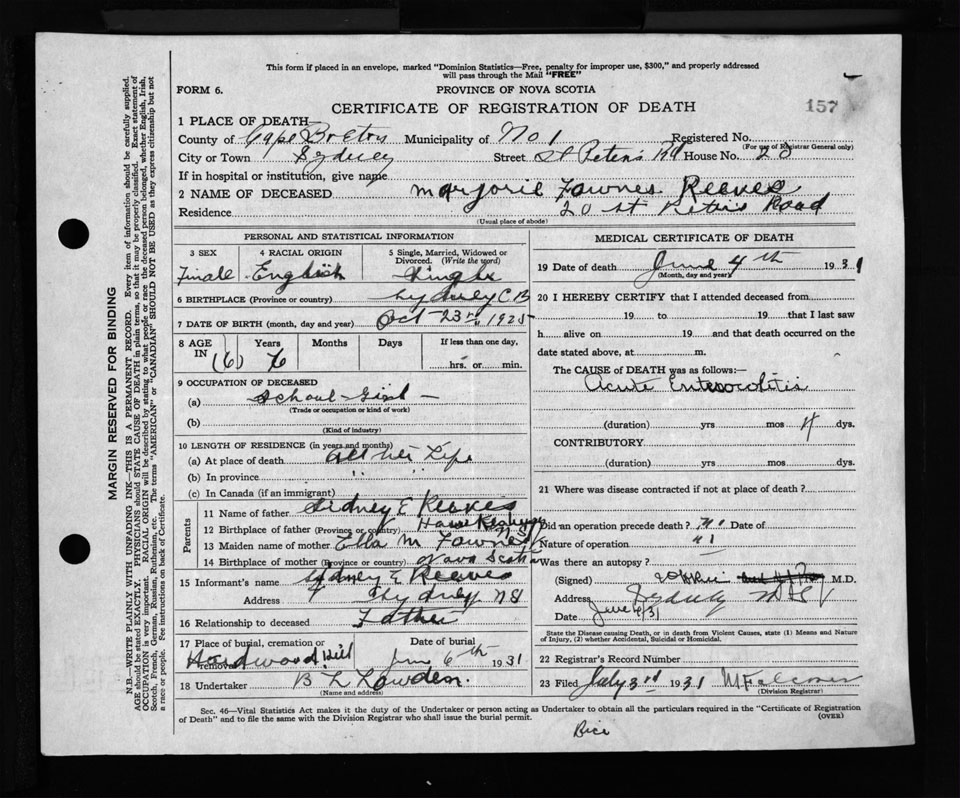 This form if placed in an envelope, marked "Dominion Statistics—Free, penalty for improper use, $300," and properly addressed
will pass through the Mail "FREE"
FORM 6.
PROVINCE OF NOVA SCOTIA
CERTIFICATE OF REGISTRATION OF DEATH
157
1 PLACE OF DEATH
County of Cape Breton Municipality of No 1 Registered No.
(For use of Registrar General only)
City or Town Sydney Street St Peters Rd House No. 20
If in hospital or institution, give name
2 NAME OF DECEASED Marjorie Fownes Reeves
Residence 20 St Peters Road
(Usual place of abode)
MARGIN RESERVED FOR BINDING
N.B.—WRITE PLAINLY WITH UNFADING INK—THIS IS A PERMANENT RECORD. Every item of information should be carefully supplied.
AGE should be stated EXACTLY. PHYSICIANS should STATE CAUSE OF DEATH in plain terms, so that it may be properly classified. Exact statement of
OCCUPATION is very important. RACIAL ORIGIN will be described by stating to what people or race the deceased person belonged, whether English, Irish,
Scotch, French, German, Russian, Ruthenian, etc. The terms "AMERICAN" or "CANADIAN" SHOULD NOT BE USED as they express citizenship but not
a race or people. Fee instructions on back of Certificate.
PERSONAL AND STATISTICAL INFORMATION
3 SEX
4 RACIAL ORIGIN
5 Single, Married, Widowed or
Divorced. (Write the word)
Female English Single
6 BIRTHPLACE (Province or country) Sydney C B
7 DATE OF BIRTH (month, day and year) Oct 23rd 1925
8 AGE IN
Years
Months
Days
If less than one day,
(6) 6
hrs. or min.
9 OCCUPATION OF DECEASED
(a) School Girl
(Trade or occupation or kind of work)
(b)
(Kind of industry)
10 LENGTH OF RESIDENCE (in years and months)
(a) At place of death All her Life
(b) In province " "
(c) In Canada (if an immigrant)
Parents
11 Name of father Sidney E Reeves
12 Birthplace of father (Province or country)
13 Maiden name of mother Ella M Fownes
14 Birthplace of mother (Province or country) Nova Scotia
15 Informant's name Sydney E Reeves
Address Sydney NS
16 Relationship to deceased Father
17 Place of burial, cremation or
removal Hardwood Hill
Date of burial
June 6th 1931
18 Undertaker B L Lowden.
(Name and address)
MEDICAL CERTIFICATE OF DEATH
19 Date of death June 4th 1931
(Month, day and year)
20 I HEREBY CERTIFY that I attended deceased from
19 to 19 that I last saw
h alive on 19 and that death occurred on the
date stated above, at m.
The CAUSE OF DEATH was as follows:—
Acute Enterocolitis
(duration) yrs mos 4 dys.
CONTRIBUTORY
(duration) yrs mos dys.
21 Where was disease contracted if not at place of death?
Did an operation precede death? No Date of
Nature of operation
Was there an autopsy?
(Signed) M.D.
Address Sydney
Date June 4/31
State the Disease causing Death, or in death from Violent Causes, state (1) Means and Nature
of Injury, (2) whether Accidental, Suicidal or Homicidal.
22 Registrar's Record Number
23 Filed July 3rd 1931
(Division Registrar)
Sec. 46—Vital Statistics Act makes it the duty of the Undertaker or person acting as Undertaker to obtain all the particulars required in the "Certificate of Registration
of Death" and to file the same with the Division Registrar who shall issue the burial permit.
(OVER)
Rice